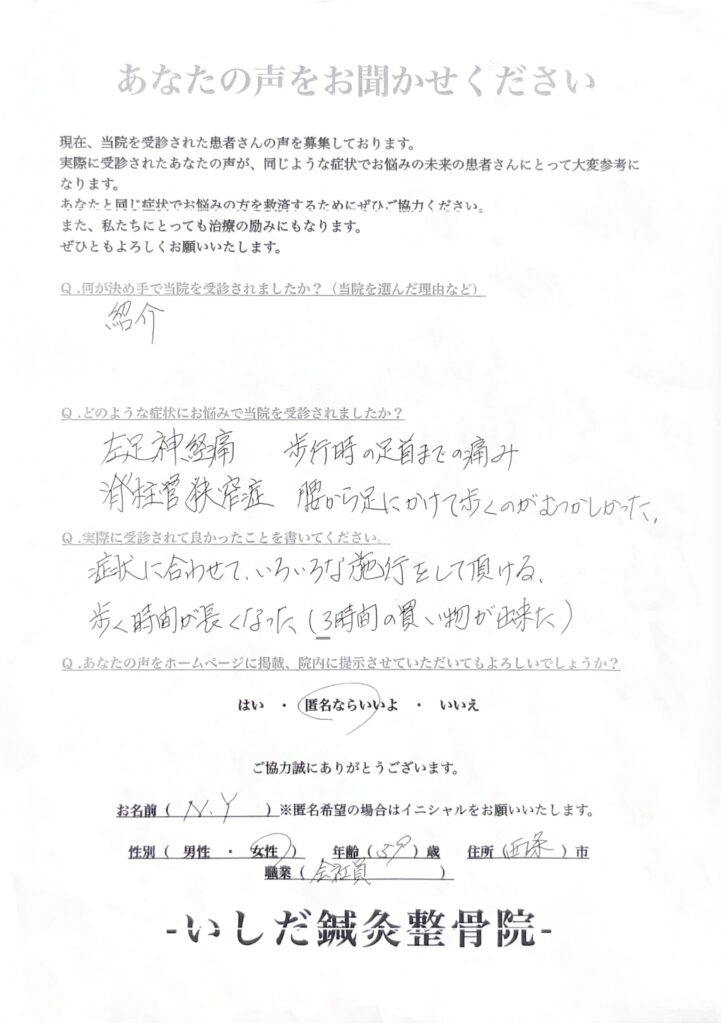 あなたの声をお聞かせください
現在、当院を受診された患者さんの声を募集しております。
実際に受診されたあなたの声が、同じような症状でお悩みの未来の患者さんにとって大変参考に
なります。
あなたと同じ症状でお悩みの方を救済するためにぜひご協力ください。
また、私たちにとっても治療の励みにもなります。
ぜひともよろしくお願いいたします。
Q.何が決め手で当院を受診されましたか？（当院を選んだ理由など）
紹介
Q.どのような症状にお悩みで当院を受診されましたか？
左足神経痛 歩行時の足首までの痛み
脊柱管狭窄症 腰から足にかけて歩くのがむつかしかった。
Q.実際に受診されて良かったことを書いてください。
症状に合わせて、いろいろな施行をして頂ける、
歩く時間が長くなった（3時間の買い物が出来た）
Q.あなたの声をホームページに掲載、院内に提示させていただいてもよろしいでしょうか？
はい ・ 匿名ならいいよ ・ いいえ
ご協力誠にありがとうございます。
お名前（ N.Y ）※匿名希望の場合はイニシャルをお願いいたします。
性別（ 男性 ・ 女性 ） 年齢（59）歳 住所（西条）市
職業（会社員 ）
-いしだ鍼灸整骨院-